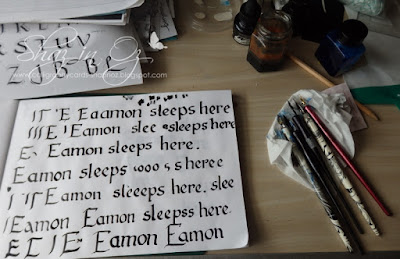 RSTUV
Shaz in Oz
Z B B
IT 'E Eaamon sleeps here
E I Eamon slee sleeps here
E Eamon sleeps here.
Eamon sleeps oooo s s heree
I I Eamon sleeps here. slee
I Eamon Eamon sleepss here.
E E I E Eamon Eamon